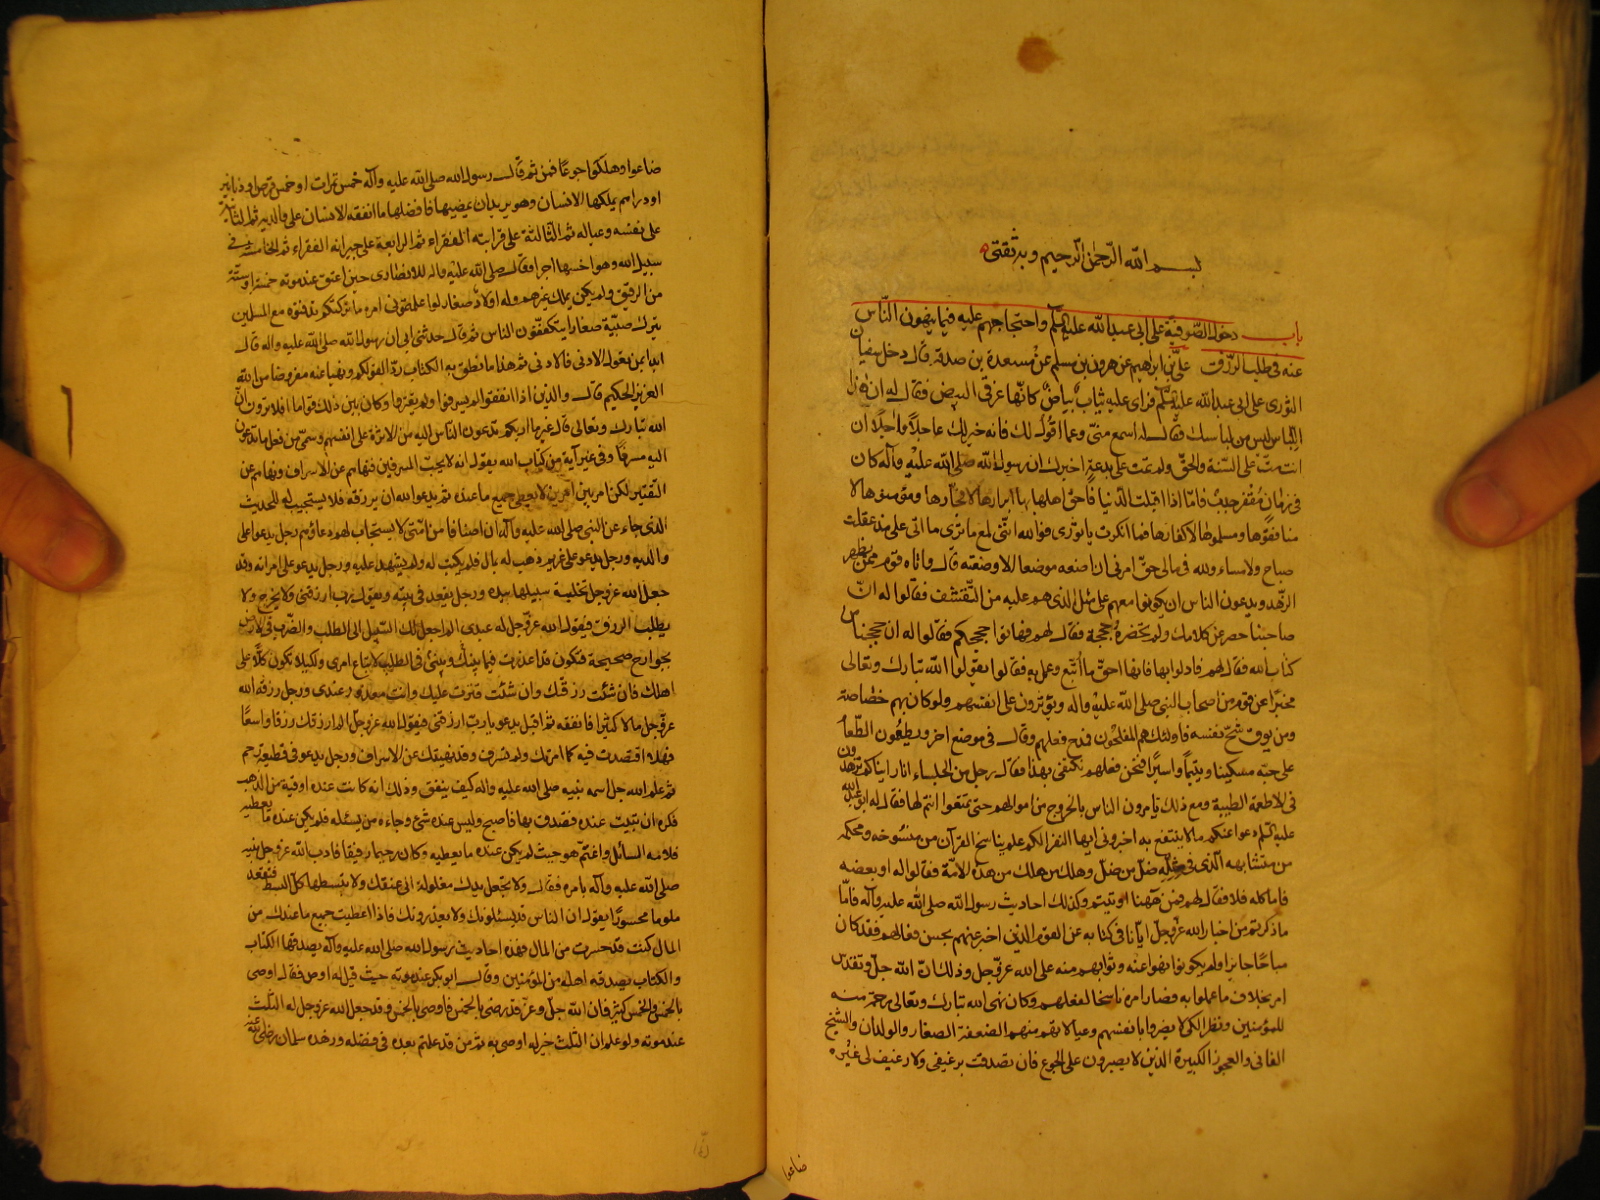 بسم الله الرحمن الرحيم وبه ثقتي
باب دخول الصوفية على ابي عبد الله عليه السلم واحتجاجهم عليه فيما ينهون الناس
عنه في طلب الرزق علي بن ابراهيم عن هرون بن مسلم عن مسعدة بن صدقة قال دخل سفيان
الثوري على ابي عبد الله عليه السلم فراى عليه ثياب بياض كانها غرقئ البيض فقال له ان هذا
اللباس ليس من لباسك فقال له اسمع مني وع ما اقول لك فانه خير لك عاجلا واجلا ان
انت مت على السنة والحق ولم تمت على بدعة اخبرك ان رسول الله صلى الله عليه وآله كان
في زمان مقفر جدب فاما اذا اقبلت الدنيا فاحق اهلها بها ابرارها لا فجارها ومؤمنوها لا
منافقوها ومسلموها لا كفارها فما انكرت يا ثوري فوالله انني لمع ما ترى ما اتى علي مذ عقلت
صباح ولا مساء ولله في مالي حق امرني ان اضعه موضعا الا وضعته قال واتاه قوم ممن يظهر
الزهد ويدعون الناس ان يكونوا معهم على مثل الذي هم عليه من التقشف فقالوا له ان
صاحبنا حصر عن كلامك ولم تحضره حججه فقال لهم فهاتوا حججكم فقالوا له ان حججنا من
كتاب الله فقال لهم فادلوا بها فانها احق ما اتبع وعمل به فقالوا يقول الله تبارك وتعالى
مخبرا عن قوم من اصحاب النبي صلى الله عليه واله ويؤثرون على انفسهم ولو كان بهم خصاصة
ومن يوق شح نفسه فاولئك هم المفلحون فمدح فعلهم وقال في موضع اخر ويطعمون الطعام
على حبه مسكينا ويتيما واسيرا فنحن نكتفي بهذا فقال رجل من الجلساء انا رايناكم تزهدون
في الاطعمة الطيبة ومع ذلك تامرون الناس بالخروج من اموالهم حتى تمتعوا انتم لها فقال له ابو عبد الله
عليه السلم دعوا عنكم ما لا ينتفع به اخبروني ايها النفر الكم علم بناسخ القرآن من منسوخه ومحكمه
من متشابهه الذي في مثله ضل من ضل وهلك من هلك من هذه الامة فقالوا له او بعضه
فاما كله فلا فقال لهم فمن ههنا اوتيتم وكذلك احاديث رسول الله صلى الله عليه وآله فاما
ما ذكرتم من اخبار الله عز وجل ايانا في كتابه عن القوم الذين اخبر عنهم بحسن فعالهم فقد كان
مباحا جائزا ولم يكونوا نهوا عنه وثوابهم منه على الله عز وجل وذلك ان الله جل وتقدس
امر بخلاف ما عملوا به فصار امره ناسخا لفعلهم وكان نهى الله تبارك وتعالى رحمة منه
للمؤمنين ونظرا لكيلا يضروا بانفسهم وعيالاتهم منهم الضعفة الصغار والولدان والشيخ
الفاني والعجوز الكبيرة الذين لا يصبرون على الجوع فان تصدقت برغيفي ولا رغيف لي غيره
ضاعوا
ضاعوا وهلكوا جوعا فمن ثم قال رسول الله صلى الله عليه وآله خمس تمرات او خمس قرص او دنانير
او دراهم يملكها الانسان وهو يريد ان يمضيها فافضلها ما انفقه الانسان على والديه ثم الثانية
على نفسه وعياله ثم الثالثة على قرابته الفقراء ثم الرابعة على جيرانه الفقراء ثم الخامسة في
سبيل الله وهو اخسها اجرا وقال صلى الله عليه واله للانصاري حين اعتق عند موته خمسة او ستة
من الرقيق ولم يكن يملك غيرهم وله اولاد صغار لو اعلمتموني امره ما تركتكم تدفنوه مع المسلمين
يترك صبية صغارا يتكففون الناس ثم قال حدثني ابي ان رسول الله صلى الله عليه واله قال
ابدا بمن تعول الادنى فالادنى ثم هذا ما نطق به الكتاب ردا لقولكم ونهيا عنه مفروضا من الله
العزيز الحكيم قال والذين اذا انفقوا لم يسرفوا ولم يقتروا وكان بين ذلك قواما افلا ترون ان
الله تبارك وتعالى قال غير ما اريكم تدعون الناس اليه من الاثرة على انفسهم وسمى من فعل ما تدعون
اليه مسرفا وفي غير آية من كتاب الله يقول انه لا يحب المسرفين فنهاهم عن الاسراف ونهاهم عن
التقتير لكن امر بين امرين لا يعطي جميع ما عنده ثم يدعو الله ان يرزقه فلا يستجيب له للحديث
الذي جاء عن النبي صلى الله عليه وآله ان اصنافا من امتي لا يستجاب لهم دعاؤهم رجل يدعو على
والديه ورجل يدعو على غريم ذهب له بمال فلم يكتب له ولم يشهد عليه ورجل يدعو على امراته وقد
جعل الله عز وجل تخلية سبيلها بيده ورجل يقعد في بيته ويقول رب ارزقني ولا يخرج ولا
يطلب الرزق فيقول الله عز وجل له عبدي الم اجعل لك السبيل الى الطلب والضرب في الارض
بجوارح صحيحة فتكون قد اعذرت فيما بينك وبيني في الطلب لاتباع امري ولكيلا تكون كلا على
اهلك فان شئت رزقتك وان شئت قترت عليك وانت معذور عندي ورجل رزقه الله
عز وجل مالا كثيرا فانفقه ثم اقبل يدعو يا رب ارزقني فيقول الله عز وجل الم ارزقك رزقا واسعا
فهلا اقتصدت فيه كما امرتك ولم تسرف وقد نهيتك عن الاسراف ورجل يدعو في قطيعة رحم
ثم علم الله جل اسمه نبيه صلى الله عليه واله كيف ينفق وذلك انه كانت عنده اوقية من الذهب
فكره ان تبيت عنده فصدق بها فاصبح وليس عنده شئ وجاءه من يسئله فلم يكن عنده ما يعطيه
فلامه السائل واغتم هو حيث لم يكن عنده ما يعطيه وكان رحيما رفيقا فادب الله عز وجل نبيه
صلى الله عليه وآله بامره فقال ولا تجعل يدك مغلولة الى عنقك ولا تبسطها كل البسط فتقعد
ملوما محسورا يقول ان الناس قد يسئلونك ولا يعذرونك فاذا اعطيت جميع ما عندك من
المال كنت قد حسرت من المال فهذه احاديث رسول الله صلى الله عليه وآله يصدقها الكتاب
والكتاب يصدقه اهله من المؤمنين وقال ابو بكر عند موته حيث قيل له اوص فقال اوصي
بالخمس والخمس كثير فان الله جل وعز قد رضي بالخمس فاوصى بالخمس وقد جعل الله عز وجل له الثلث
عند موته ولو علم ان الثلث خير له اوصى به ثم من قد علمتم بعده في فضله وزهده سلمان رضي الله عنه